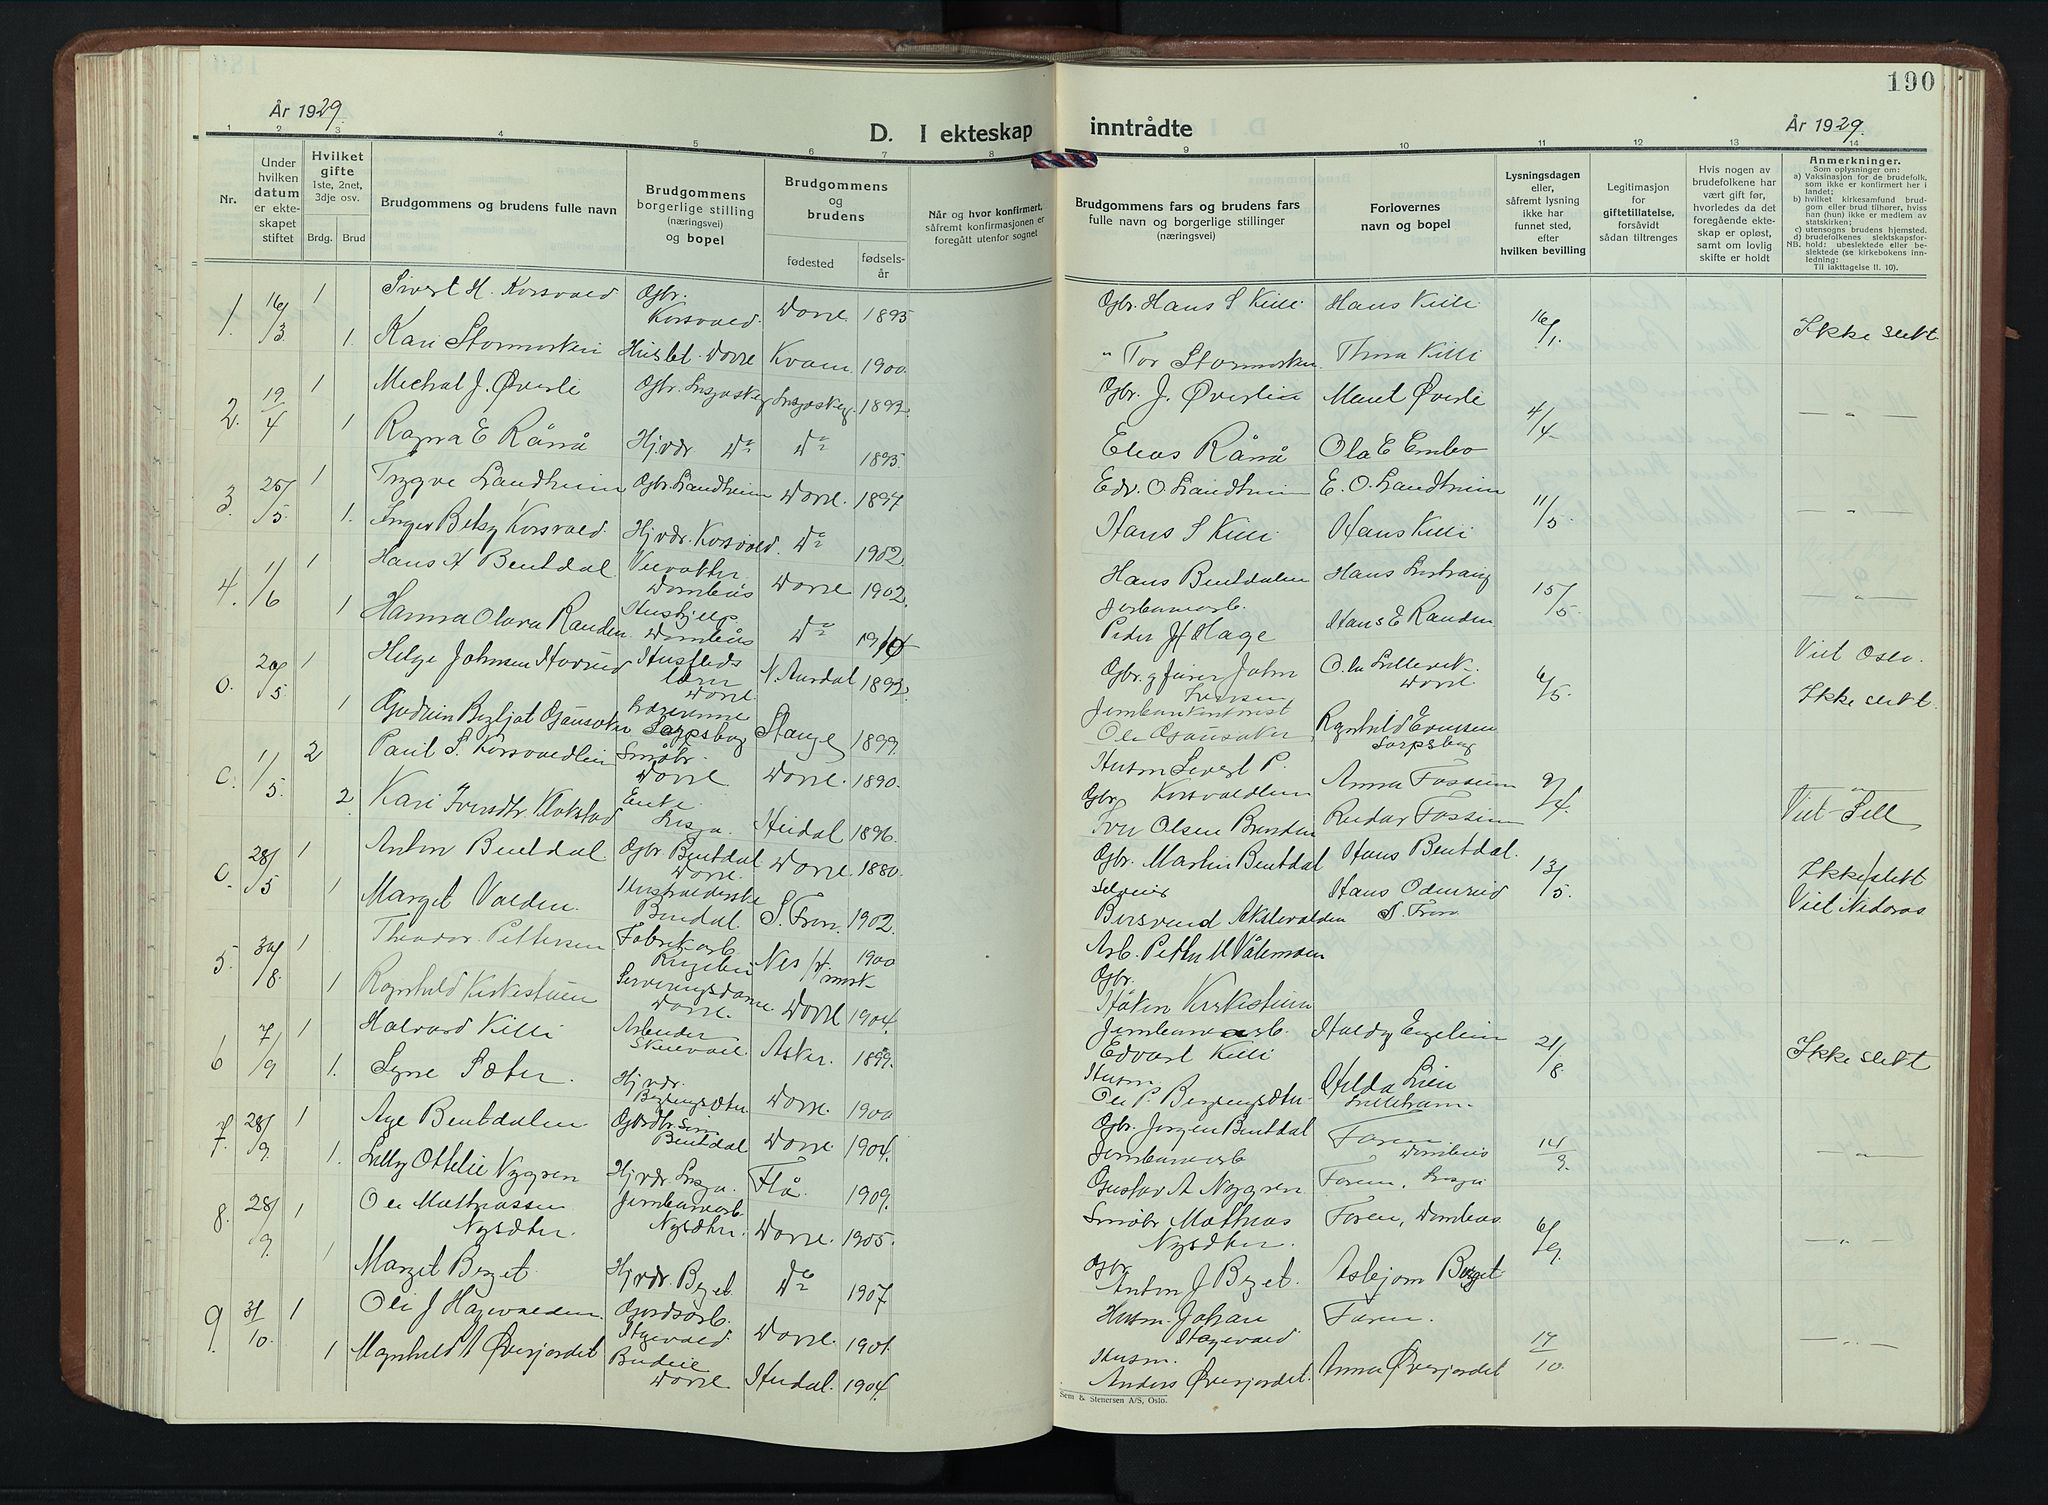 190
År 1929.
D. I ekteskap inntrådte
År 1929.
1 2 3 4 5 6 7 8 9 10 11 12 13 14
Nr.
Under hvilken datum er ekteskapet stiftet
Hvilket gifte
1ste, 2net, 3dje osv.
Brdg. Brud
Brudgommens og brudens fulle navn
Brudgommens borgerlige stilling (næringsvei) og bopel
Brudgommens og brudens
fødested
fødselsår
Når og hvor konfirmert, såfremt konfirmasjonen er foregått utenfor sognet
Brudgommens fars og brudens fars fulle navn og borgerlige stillinger (næringsvei)
Forlovernes navn og bopel
Lysningsdagen eller, såfremt lysning ikke har funnet sted, efter hvilken bevilling
Legitimasjon for giftetillatelse, forsåvidt sådan tiltrenges
Hvis nogen av brudefolkene har vært gift før, hvorledes da det foregående ekteskap er opløst, samt om lovlig skifte er holdt
Anmerkninger.
Som oplysninger om:
a) Vaksinasjon for de brudefolk, som ikke er konfirmert her i landet;
b) hvilket kirkesamfund brudgom eller brud tilhører, hviss han (hun) ikke er medlem av statskirken;
c) utensogns brudens hjemsted.
d) brudefolkenes slektskapsforhold: ubeslektede eller beslektede (se kirkebokens innledning:
NB. Til iakttagelse II. 10).
1. 16/3 1 Sivert H. Korsvold Gbr. Korsvold. Dovre 1895 Gbr. Hans S Killi Hans Killi 16/1. Ikke slekt.
1. Kari Stormorken Huslet. Dovre Kvam. 1900 " Tor Stormorken. Thora Killi
2. 19/4 1 Michal J. Øverli Gbr. Lesjaskog Lesjaskog 1892. Gbr. J. Øverlien Marit Øverli 4/4 — " —
1 Ragna E Rånå Hj.vdr Do Do 1895. Elias Rånå Ola E Enebo
3. 25/5. 1 Trygve Landheim Gbr. Landheim Dovre. 1897 Edv. O. Landheim E. O. Landheim 11/5. — " —
1. Inger Betsy Korsvold. Hjvdr. Korsvold. Do 1902. Hans S Killi. Hans Killi
4. 1/6 1 Hans H Bentdal Dombås Dovre 1902. Hans Bentdalen Hans 15/5. — " —
1 Hanna Olava Randen. Hushjelp Dombås Do 1910 Jernbanearb. Peder H Hage Hans E Randen
0. 20/5 1 Helge Johnsen Dovre N. Aurdal 1892. Gbr. John Larsen Ola Dovre 6/5. Viet Oslo. Ikke slekt.
1 Gudrun Lærerinne Sarpsborg Stange 1899. Jernbanekontorist Ole Ragnhild Evensen Sarpsborg
0. 1/5. 2 Paul S. Korsvoldlien Småbr. Dovre Dovre. 1890. Husm Sivert P. Korsvoldlien Anna Fossum 9/4. "
2 Kari Iversdtr Klokstad Enke. Lesja. Heidal 1896. Gbr Iver Olsen Brenden Reidar Fossum Viet Sell
0. 28/5 1 Anton Bentdal Gbr Bentdal Dovre. Dovre. 1880. Gbr. Martin Bentdal Hans Bentdal. 13/5. Ikke slekt
1 Margit Valden. Husholderske Bendal. S. Fron. 1902. Selveier Bersvend Hans Odenrud S. Fron Viet Nidaros
5. 30/8 1 Theodor Pettersen Fabrikarb. Nes 1900 Arb. Petter
1 Ragnhild Kirkestuen Serveringsdame Dovre. Dovre 1904. Gbr. Håkon Kirkestuen
6 7/9 1 Halvard Killi Arbeider Asker. 1899. Jernbanearb. Edvart Killi 21/8 Ikke slekt
1. Syne Sæter. Hj.vdr. Dovre. 1900 Husm Ole P. Hilda Lien Lillehamm.
7. 28/9. 1 Age Bentdalen Gårdbr.søn Bentdal Dovre. 1904. Gbr. Jørgen Bentdal Faren Dombås 14/9. — " —
1. Lilly Ottelie Nygren Hjvdr Lesja. Flå 1909. Jernbanearb Gustav A Nygren Faren, Lesja
8. 28/9. 1 Ole Mathiassen Nysæter. Jernbanearb. Nysæter. Dovre. 1905. Småbr Mathias Nysæter. Faren, Dombås 6/9. — " —
1 Margit Berget. Hjvdr. Berget. Do 1907 Gbr Anton J Berget. Asbjørn Berget
9. 31/10. 1 Ole J Hagevolden Gårdsarb. Hagevold Dovre. 1901. Husm. Johan Hagevold Faren. 17/10. — " —
1 Magnhild A Øverjordet Budeie Dovre Heidal. 1904. Husm. Anders Øverjordet. Anna Øverjordet
Sem & Stenersen A/S, Oslo.